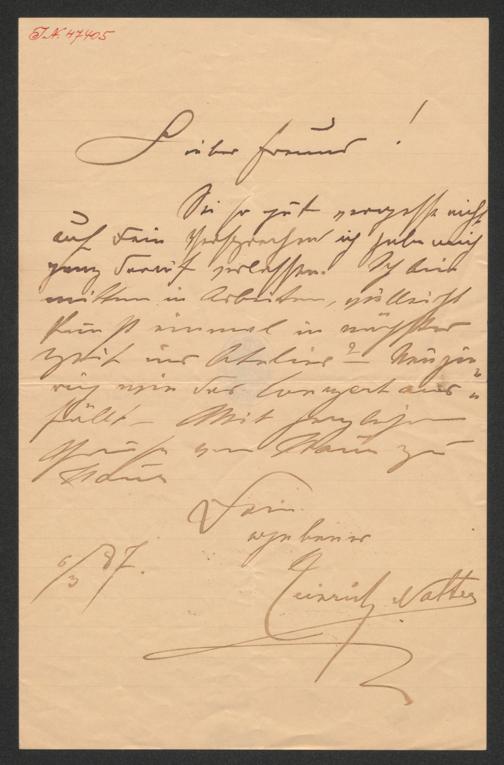 I.N. 47405
Lieber Freund!
Sei so gut vergesse nicht
auf Dein Versprechen ich habe mich
ganz darauf verlassen. Ich bin
mitten in Arbeiten, vielleicht
kom̅st einmal in nächster
Zeit ins Atelier? – Neugie-
rig wie das Concert aus-
fällt – Mit herzlichen
Grüße von Haus zu
Haus
Dein
ergebener
Heinrich Natter
6/3 87.